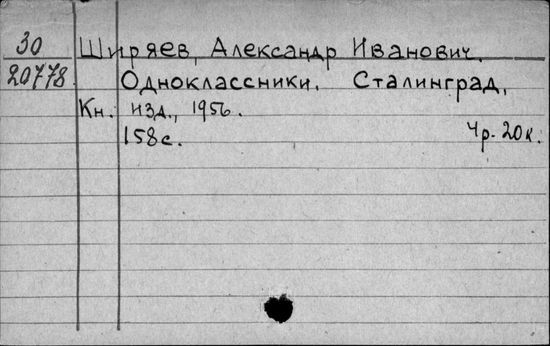 30 Ширяев, Александр Иванович.
20778. Одноклассники. Сталинград,
Кн. изд., 1956.
158с. 4р. 20к.